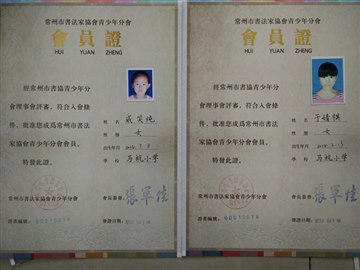 常州市書法家協會青少年分會
會員證
HUI YUAN ZHENG
經常州市書協青少年分
會理事會評審，符合入會條
件，批准您成爲常州市書法
家協會青少年分會會員，
特發此證。
姓名
性别 女
出生年月
學校 小學
常州市書法家協會青少年分會
會長簽章：張軍佳
證書編號：
發證日期：
常州市書法家協會青少年分會
會員證
HUI YUAN ZHENG
經常州市書協青少年分
會理事會評審，符合入會條
件，批准您成爲常州市書法
家協會青少年分會會員，
特發此證。
姓名
性别 女
出生年月
學校 小學
常州市書法家協會青少年分會
會長簽章：張軍佳
證書編號：
發證日期：